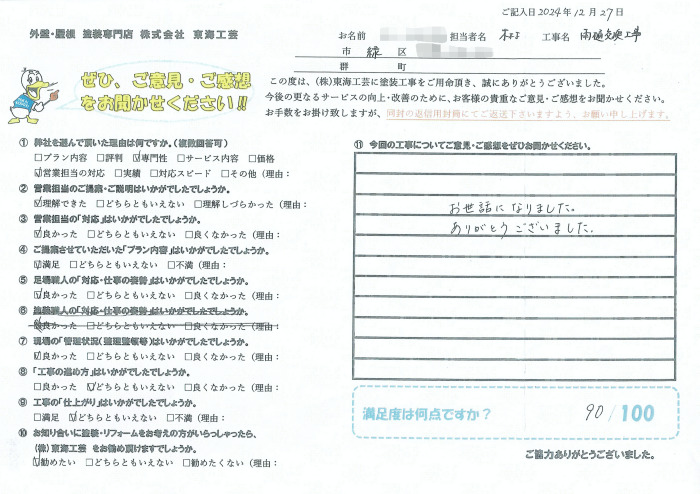 ご記入日2024年12月27日
外壁・屋根 塗装専門店 株式会社 東海工芸
お名前 担当者名 工事名 雨樋交換工事
市 緑 区
郡 町
ぜひ、ご意見・ご感想
をお聞かせください!!
この度は、(株)東海工芸に塗装工事をご用命頂き、誠にありがとうございました。
今後の更なるサービスの向上・改善のために、お客様の貴重なご意見・ご感想をお聞かせください。
お手数をお掛け致しますが、同封の返信用封筒にてご返送下さいますよう、お願い申し上げます。
① 弊社を選んで頂いた理由は何ですか。(複数回答可)
□プラン内容 □評判 ☑専門性 □サービス内容 □価格
☑営業担当の対応 □実績 □対応スピード □その他(理由:
② 営業担当のご提案・ご説明はいかがでしたでしょうか。
☑理解できた □どちらともいえない □理解しづらかった(理由:
③ 営業担当の「対応」はいかがでしたでしょうか。
☑良かった □どちらともいえない □良くなかった(理由:
④ ご提案させていただいた「プラン内容」はいかがでしたでしょうか。
☑満足 □どちらともいえない □不満(理由:
⑤ 足場職人の「対応・仕事の姿勢」はいかがでしたでしょうか。
☑良かった □どちらともいえない □良くなかった(理由:
⑥ 塗装職人の「対応・仕事の姿勢」はいかがでしたでしょうか。
☑良かった □どちらともいえない □良くなかった(理由:
⑦ 現場の「管理状況(整理整頓等)はいかがでしたでしょうか。
☑良かった □どちらともいえない □良くなかった(理由:
⑧ 「工事の進め方」はいかがでしたでしょうか。
□良かった ☑どちらともいえない □良くなかった(理由:
⑨ 工事の「仕上がり」はいかがでしたでしょうか。
□満足 ☑どちらともいえない □不満(理由:
⑩ お知り合いに塗装・リフォームをお考えの方がいらっしゃったら、
(株)東海工芸 をお勧め頂けますでしょうか。
☑勧めたい □どちらともいえない □勧めたくない(理由:
⑪ 今回の工事についてご意見・ご感想をぜひお聞かせください。
お世話になりました。
ありがとうございました。
満足度は何点ですか? 90/100
ご協力ありがとうございました。